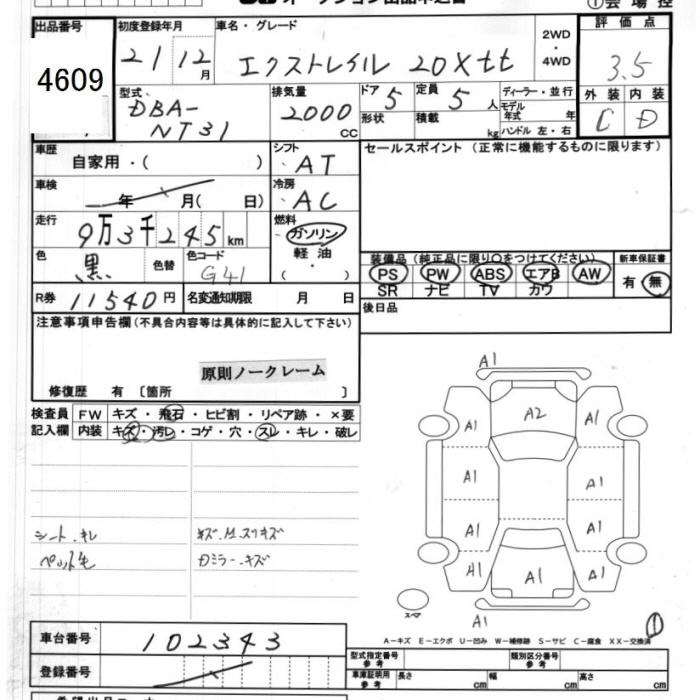 出品番号 初度登録年月 車名・グレード 評価点
4609 21 12月 エクストレイル 20Xtt 2WD・4WD 3.5
型式 DBA-NT31 排気量 2000cc ドア 5 定員 5人 ディーラー・並行 外装 内装
形状 積載 kg モデル年式 年 ハンドル 左・右 C D
車歴 自家用・( ) シフト AT セールスポイント(正常に機能するものに限ります)
車検 年 月( 日) 冷房 AC
走行 9万3千245km 燃料 ガソリン 軽油・( )
色 黒 色替 色コード G41 装備品(純正品に限り○をつけてください) 新車保証書
PS PW ABS エアB AW 有・無
SR ナビ TV カワ
R券 11540円 名変通知期限 月 日 後日品
注意事項申告欄(不具合内容等は具体的に記入して下さい)
原則ノークレーム
修復歴 有〔箇所 〕
検査員記入欄 FW キズ・飛石・ヒビ割・リペア跡・×要
内装 キズ・汚レ・コゲ・穴・スレ・キレ・破レ
シート.キレ キズ.M.スリキズ
ペット毛 Dミラー.キズ
A1
A1 A2 A1
A1 A1
A1 A1
A1 A1 A1
スペア
A1
①
A-キズ E-エクボ U-凹み W-補修跡 S-サビ C-腐食 XX-交換済
車台番号 102343
型式指定番号参考 類別区分番号参考
登録番号 車庫証明用参考 長さ cm 幅 cm 高さ cm